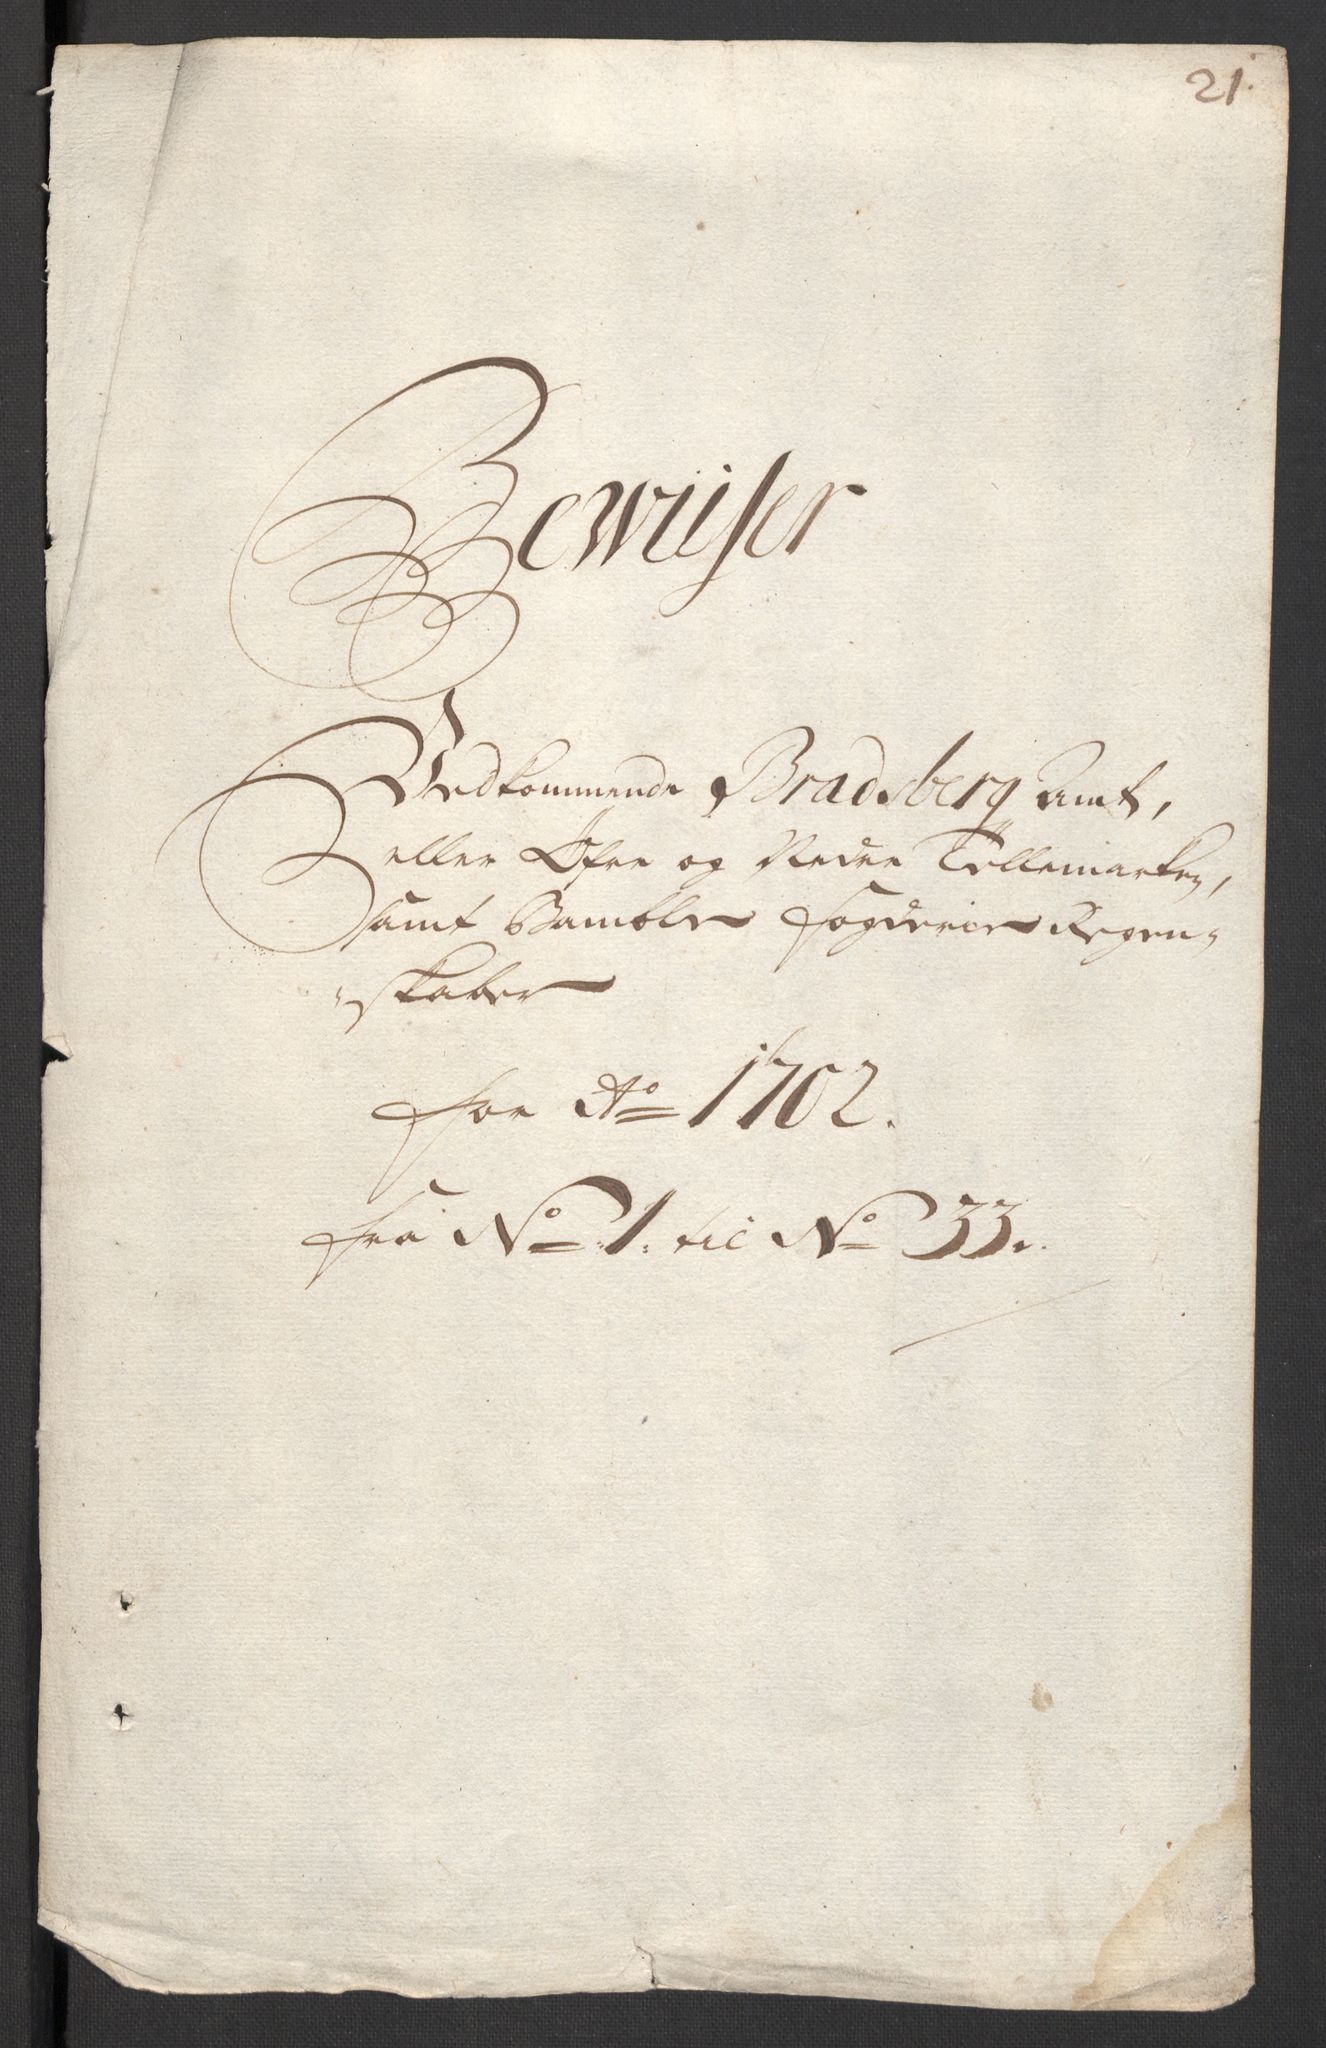 21.
Bewiiser
Vedkommende Bradsberg Amt,
eller Øfre og Nedre Tellemarken,
samt Bamble fogderier Regen-
-skaber
for Ao 1702.
fra No 1. til No 33.